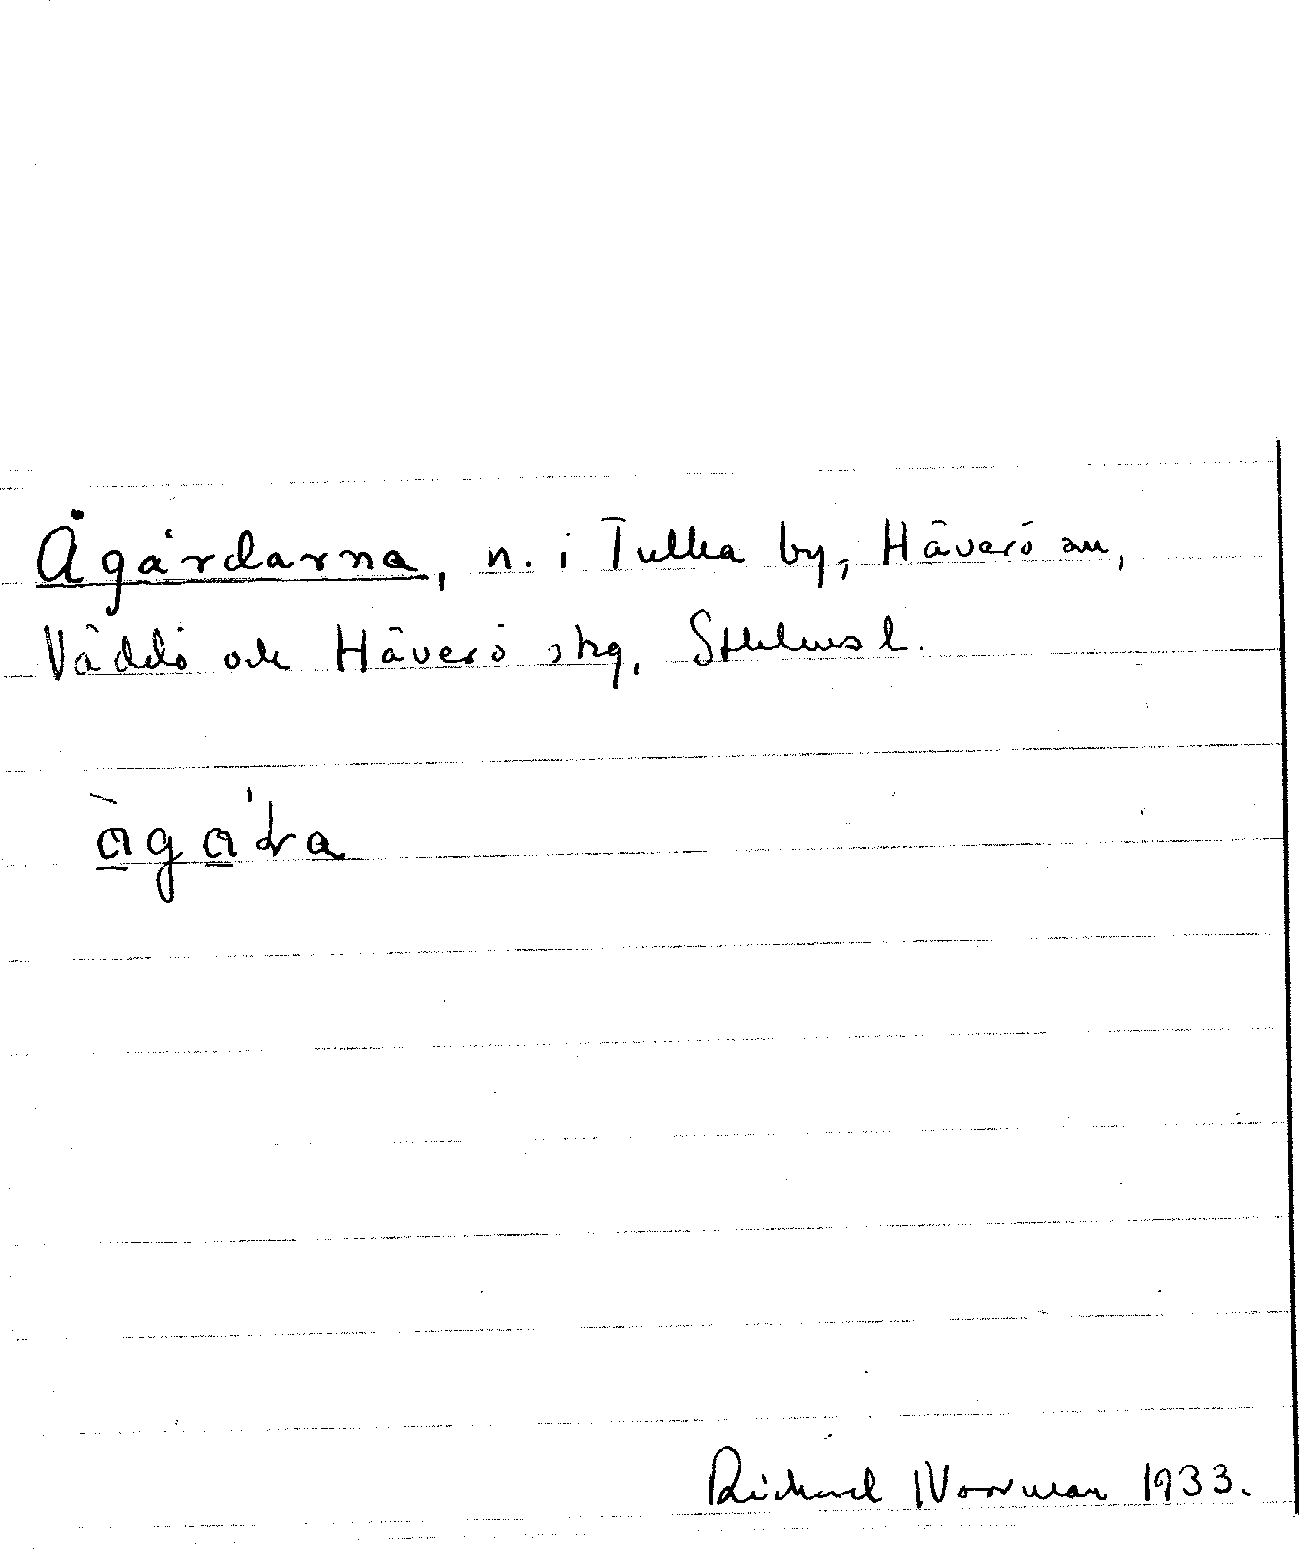 Ågårdarna, n. i Tulka by, Häverö sn,
Väddö och Häverö skg, Sthlms l.
ågåḍa
Richard Norrman 1933.